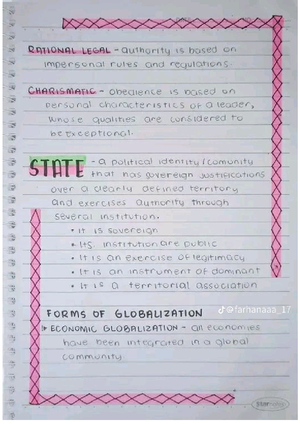 RATIONAL LEGAL - Authority is based on
impersonal rules and regulations.
CHARISMATIC - Obedience is based on
personal characteristics of a leader,
whose qualities are considered to
be exceptional.
STATE - a political identity/comunity
that has sovereign justifications
over a clearly defined territory
and exercises authority through
several institution.
• It is sovereign
• Its institution are public
• It is an exercise of legitimacy
• It is an instrument of dominant
• It is a territorial association
@farhanaaa_17
FORMS OF GLOBALIZATION
ECONOMIC GLOBALIZATION - all economies
have been integrated in a global
community